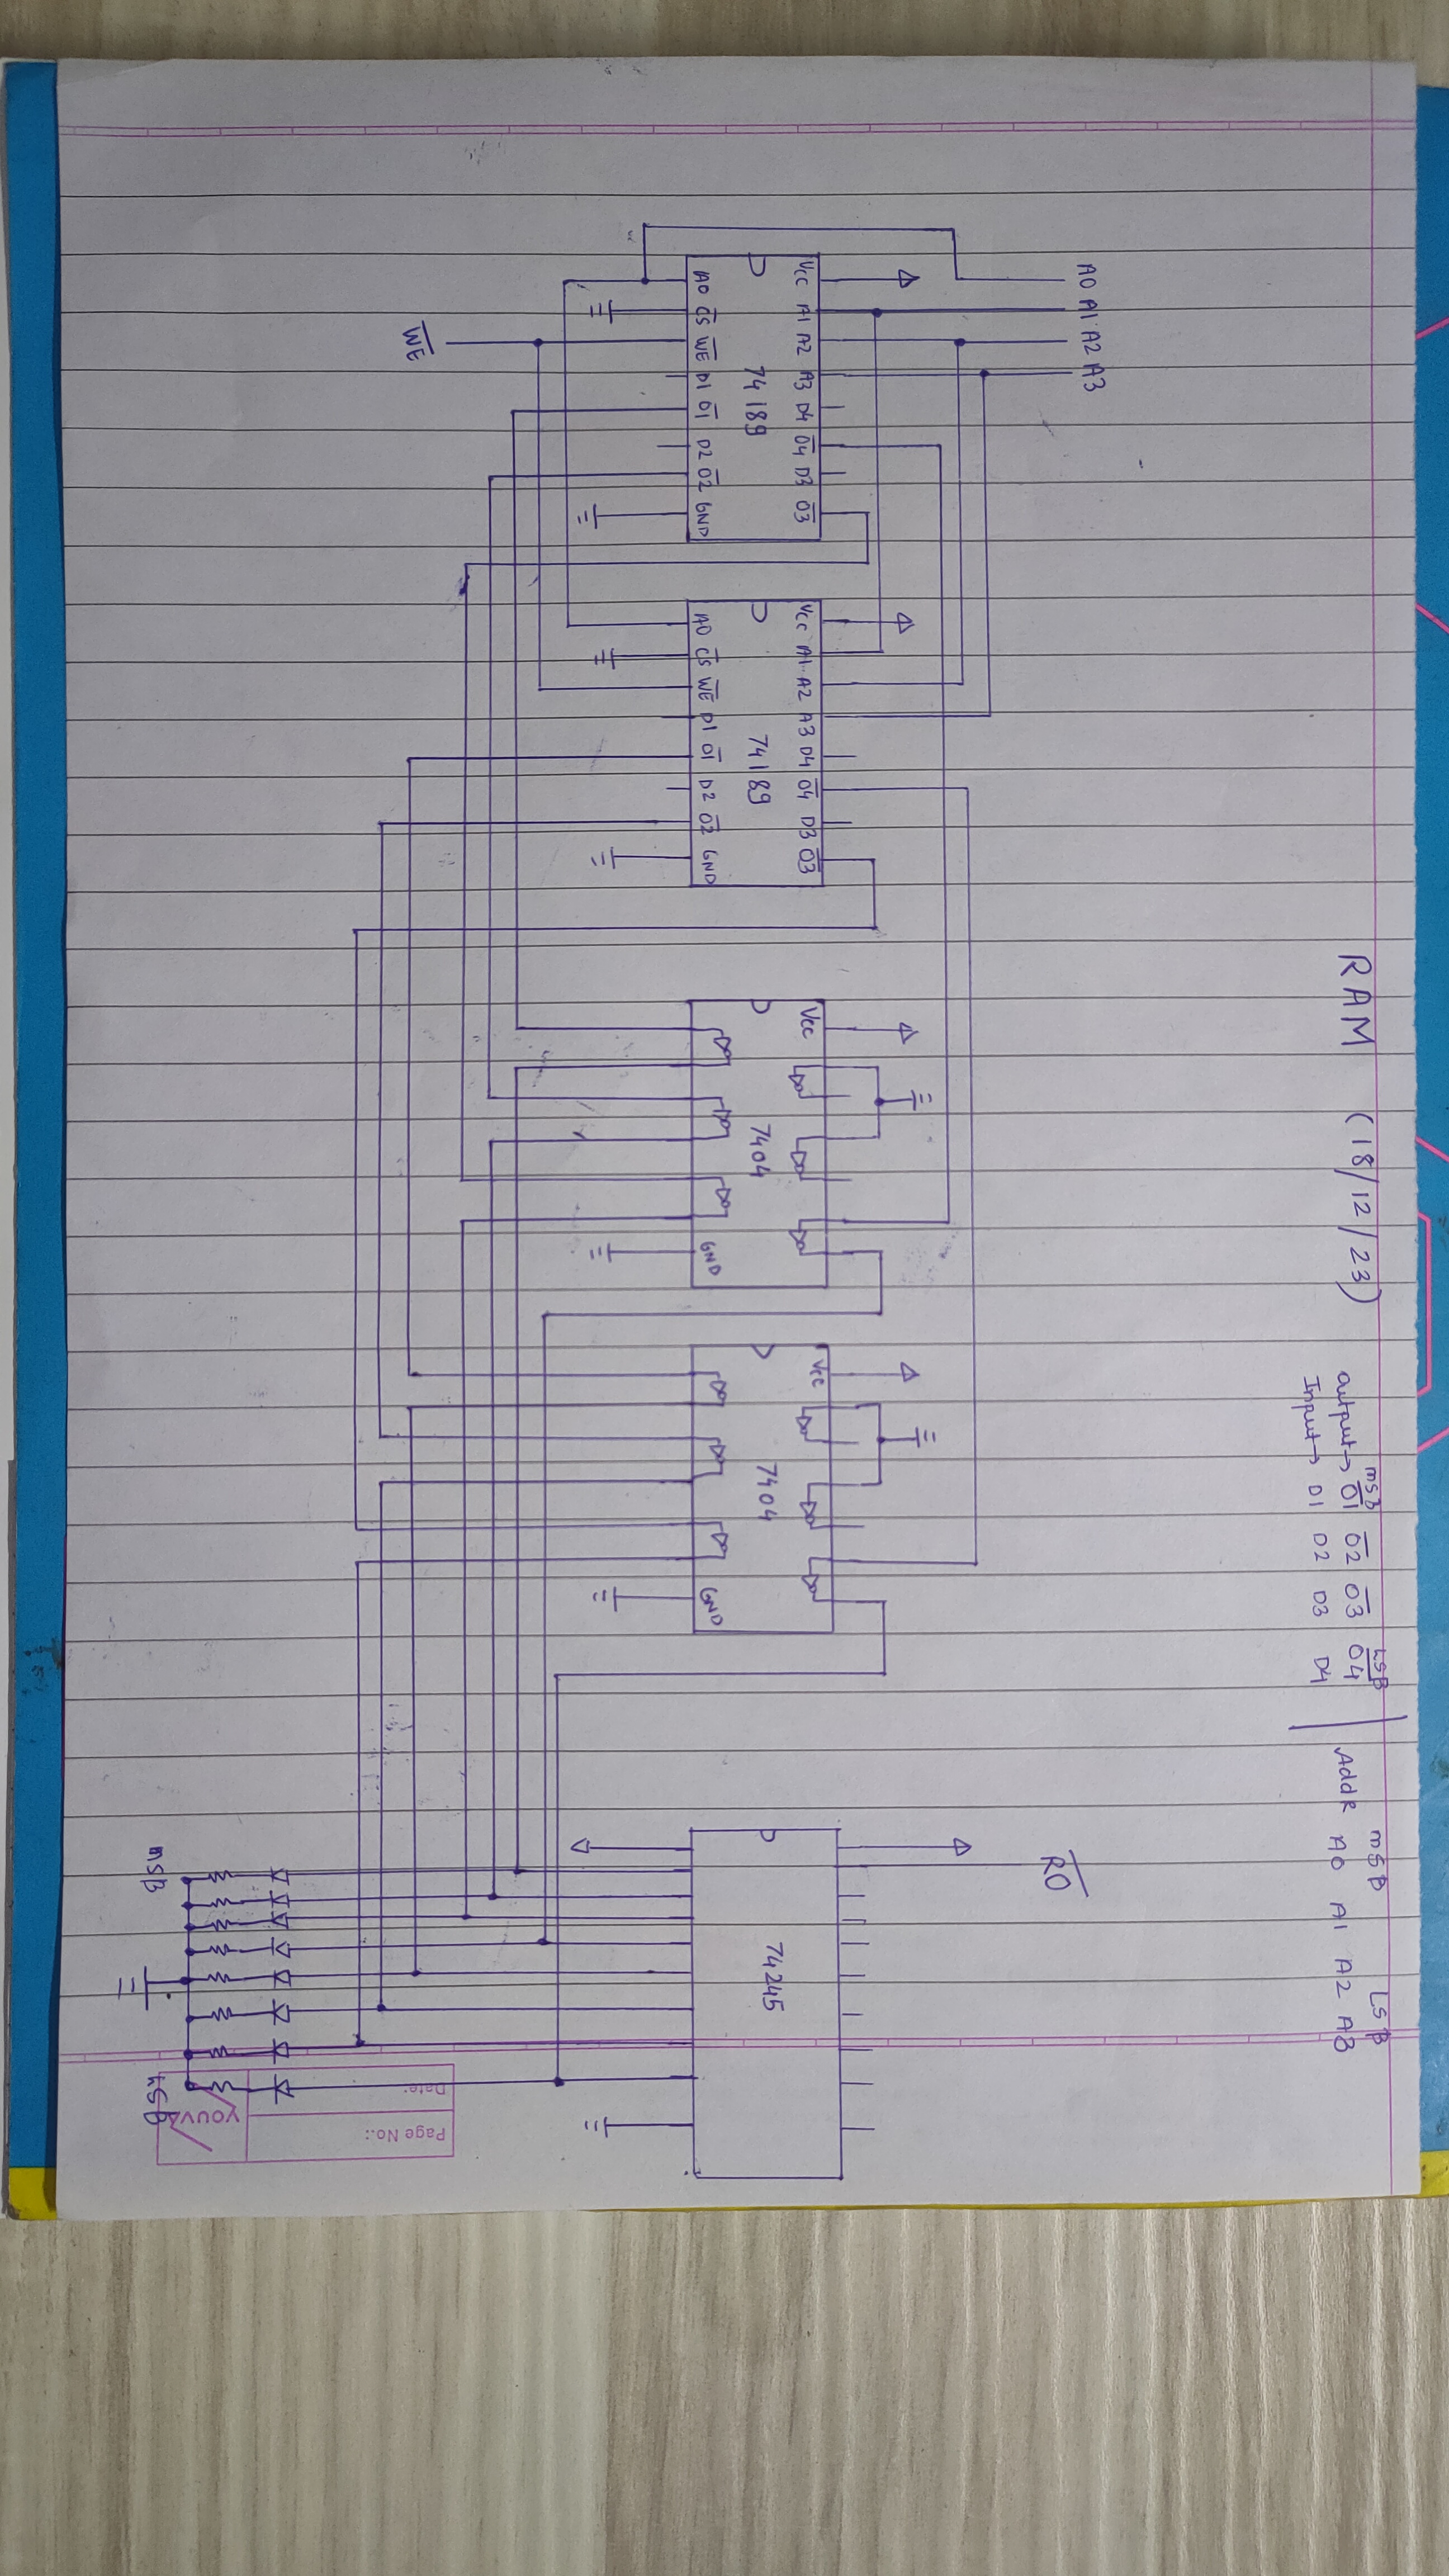 RAM (18/12/23)
MSB LSB
Output→ O̅1̅ O̅2̅ O̅3̅ O̅4̅
Input→ D1 D2 D3 D4
MSB LSB
Addr A0 A1 A2 A3
A0 A1 A2 A3
R̅O̅
Vcc A1 A2 A3 D4 O̅4̅ D3 O̅3̅
74189
A0 C̅S̅ W̅E̅ D1 O̅1̅ D2 O̅2̅ GND
Vcc A1 A2 A3 D4 O̅4̅ D3 O̅3̅
74189
A0 C̅S̅ W̅E̅ D1 O̅1̅ D2 O̅2̅ GND
Vcc
7404
GND
Vcc
7404
GND
74245
W̅E̅
MSB
LSB
Page No.:
Date:
youva